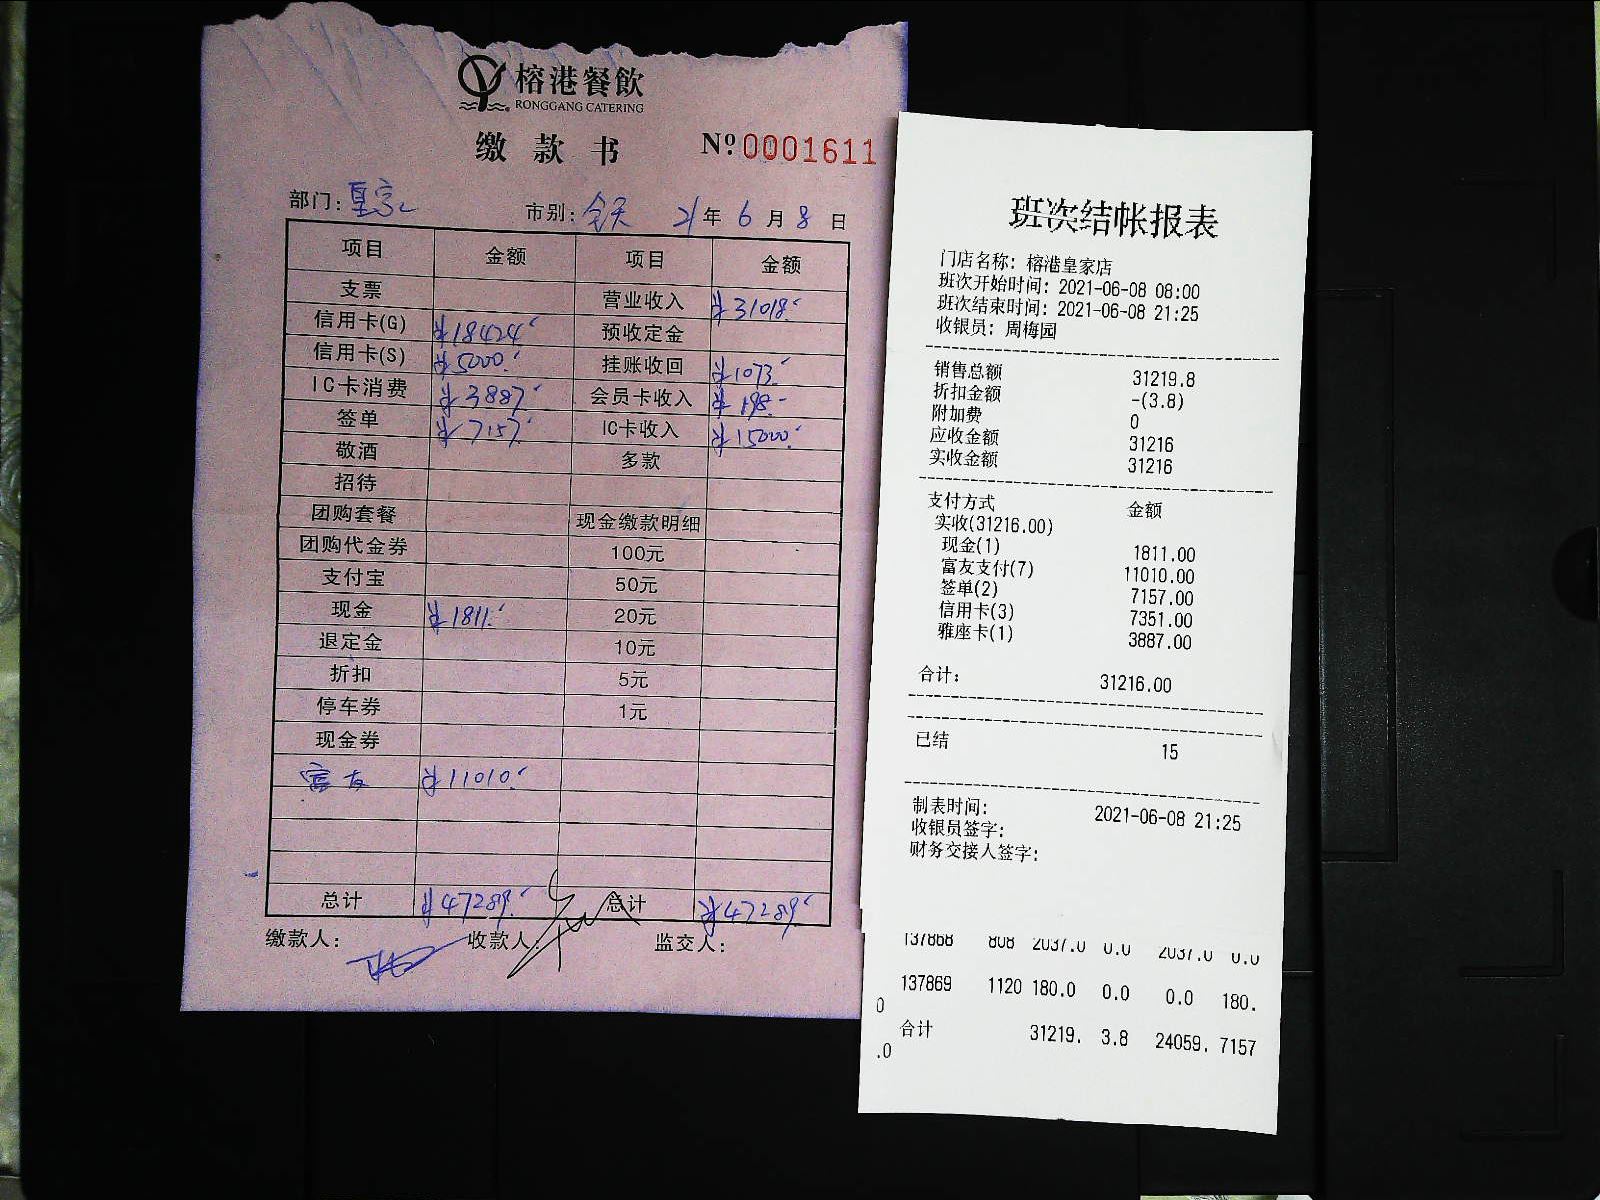 榕港餐飲
RONGGANG CATERING
缴款书 Nº 0001611
部门: 皇家 市别: 全天 21年6月8日
项目 金额 项目 金额
支票 营业收入 ¥31018.
信用卡(G) ¥18424 预收定金
信用卡(S) ¥5000. 挂账收回 ¥1073
IC卡消费 ¥3887. 会员卡收入 ¥198.-
签单 ¥7157. IC卡收入 ¥15000.
敬酒 多款
招待
团购套餐 现金缴款明细
团购代金券 100元
支付宝 50元
现金 ¥1811. 20元
退定金 10元
折扣 5元
停车券 1元
现金券
富友 ¥11010.
总计 ¥47289. 总计 ¥47289.
缴款人: 收款人: 监交人:
班次结帐报表
门店名称: 榕港皇家店
班次开始时间: 2021-06-08 08:00
班次结束时间: 2021-06-08 21:25
收银员: 周梅园
销售总额 31219.8
折扣金额 -(3.8)
附加费 0
应收金额 31216
实收金额 31216
支付方式 金额
实收(31216.00)
现金(1) 1811.00
富友支付(7) 11010.00
签单(2) 7157.00
信用卡(3) 7351.00
雅座卡(1) 3887.00
合计: 31216.00
已结 15
制表时间: 2021-06-08 21:25
收银员签字:
财务交接人签字:
137868 808 2037.0 0.0 2037.0 0.0
137869 1120 180.0 0.0 0.0 180.
0
合计 31219. 3.8 24059. 7157
.0